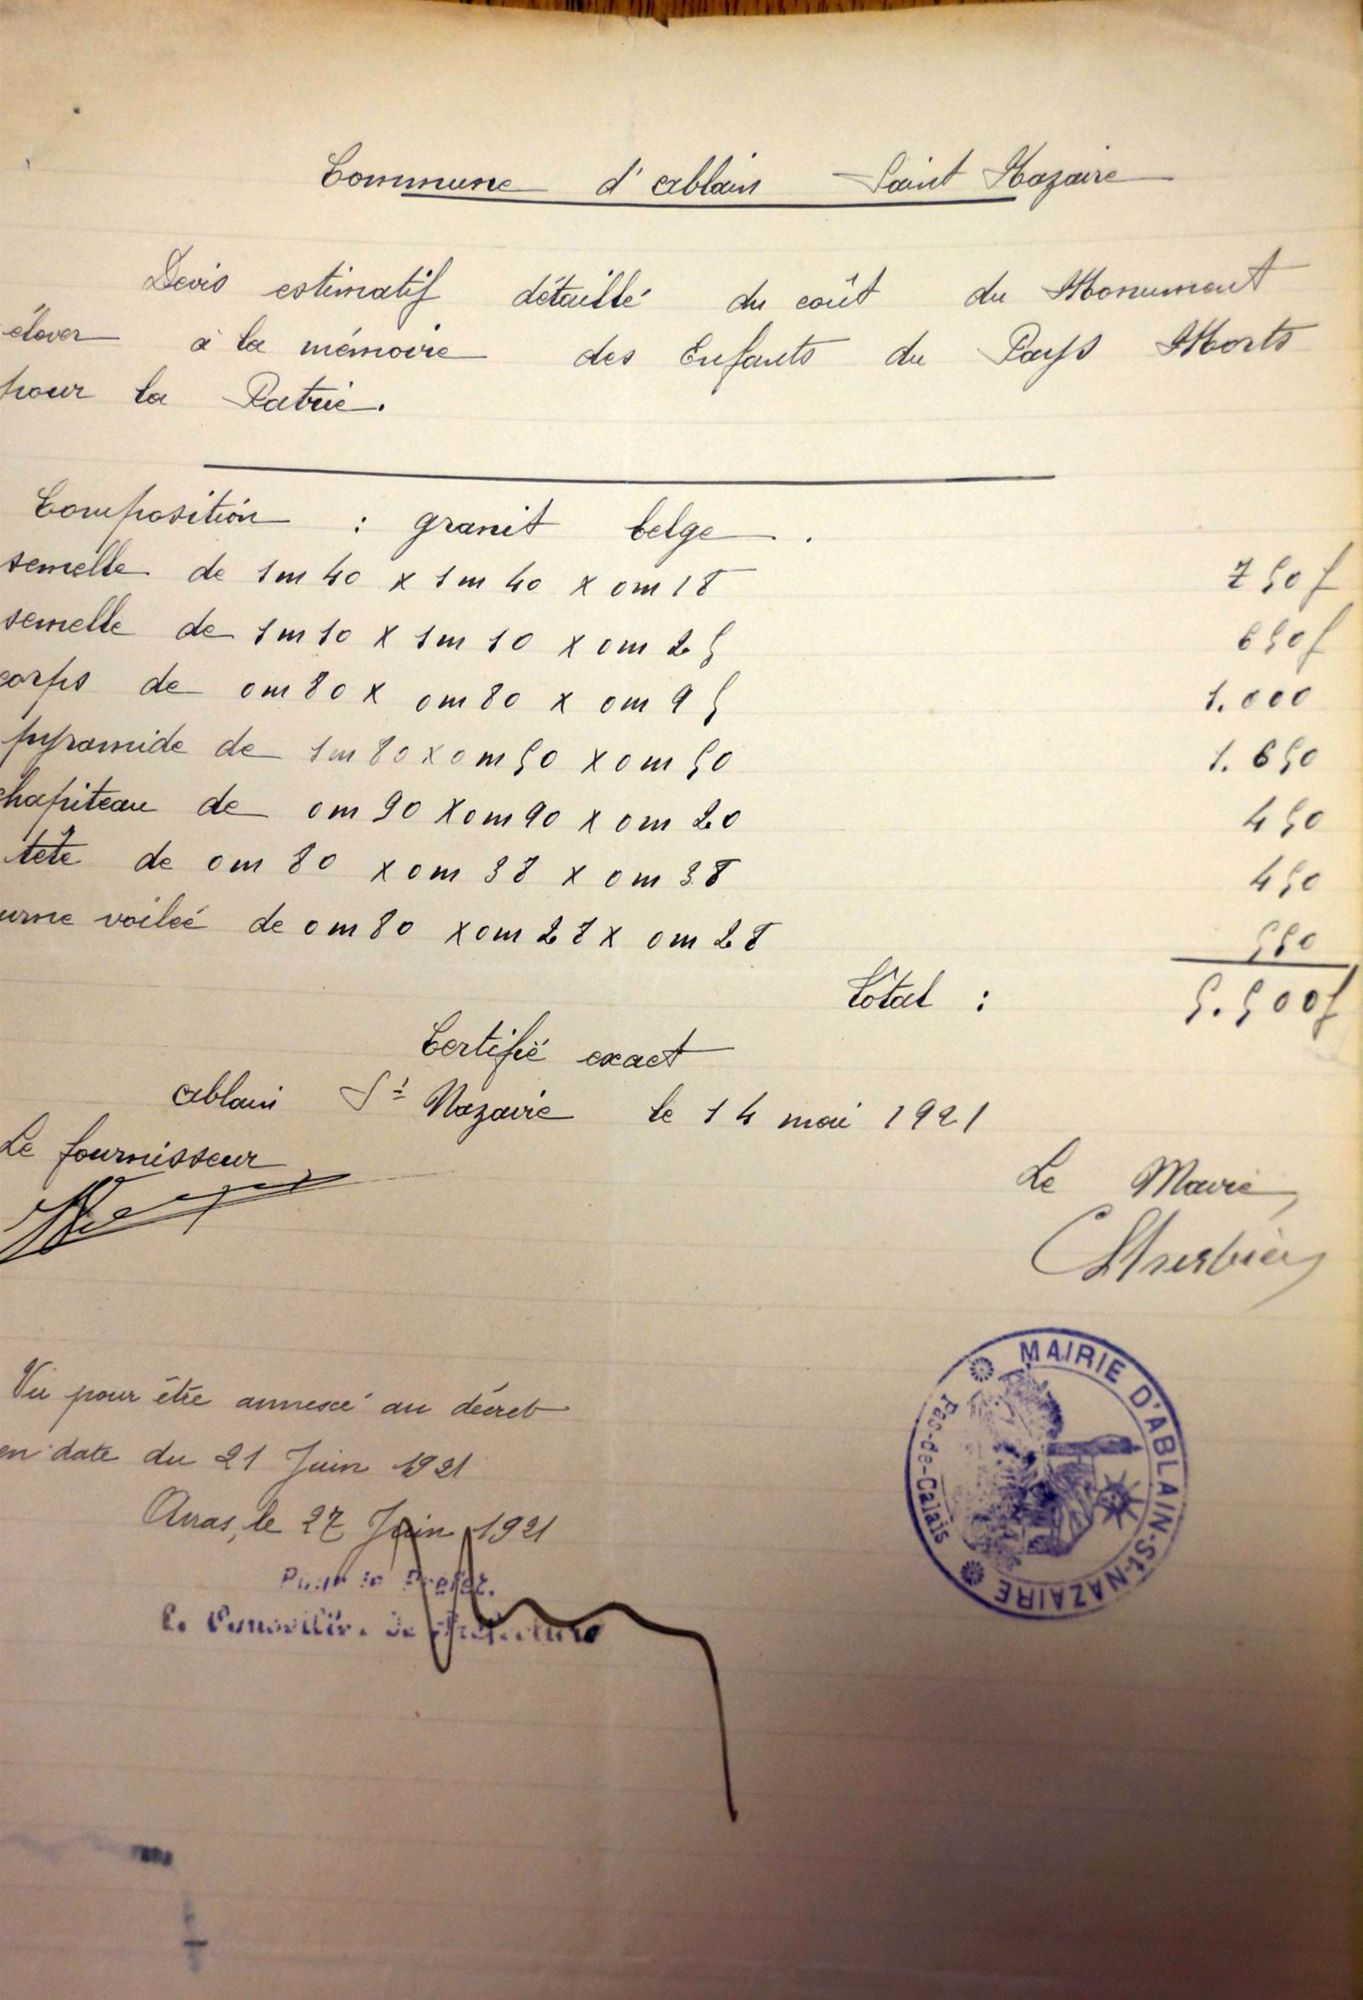 Commune d'Ablain Saint Nazaire
Devis estimatif détaillé du coût du Monument
élever à la mémoire des Enfants du Pays Morts
pour la Patrie.
Composition : granit belge.
semelle de 1m40 x 1m40 x 0m18 750f
semelle de 1m10 x 1m10 x 0m25 650f
corps de 0m80 x 0m80 x 0m95 1.000
pyramide de 1m80 x 0m50 x 0m50 1.650
chapiteau de 0m90 x 0m90 x 0m20 450
tête de 0m80 x 0m38 x 0m38 450
urne voilée de 0m80 x 0m28 x 0m28 550
Tôtal : 5.500f
Certifié exact
Ablain St Nazaire le 14 mai 1921
Le fournisseur
Le Maire,
Vu pour être annexé au décret
en date du 21 Juin 1921
Arras, le 27 Juin 1921
Pour le Préfet.
Le Conseiller de Préfecture
MAIRIE D'ABLAIN-St-NAZAIRE
Pas-de-Calais